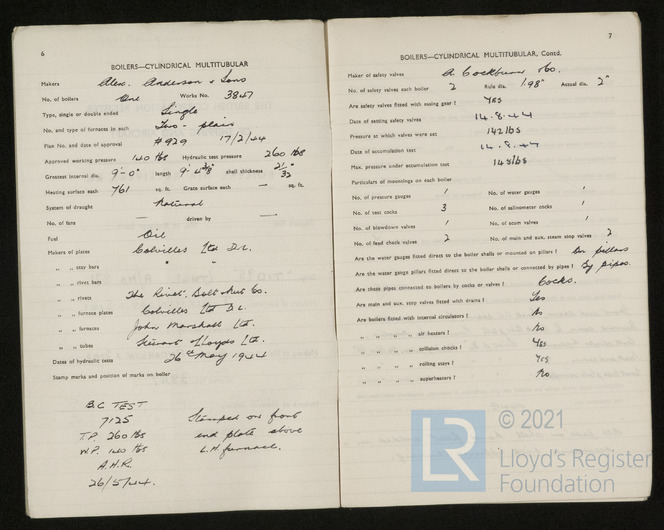 6
BOILERS—CYLINDRICAL MULTITUBULAR
Makers Alex. Anderson & Sons
No. of boilers One Works No. 3847
Type, single or double ended Single
No. and type of furnaces in each Two - plain
Plan No. and date of approval #929 17/2/44
Approved working pressure 140 lbs Hydraulic test pressure 260 lbs
Greatest internal dia. 9'-0" length 9'-4 3/8" shell thickness 21/32"
Heating surface each 761 sq. ft. Grate surface each — sq. ft.
System of draught Natural
No. of fans — driven by —
Fuel Oil
Makers of plates Colvilles Ltd D.L.
„ „ stay bars " "
„ „ rivet bars
„ „ rivets The Rivet, Bolt & Nut Co.
„ „ furnace plates Colvilles Ltd D.L.
„ „ furnaces John Marshall Ltd.
„ „ tubes Stewart & Lloyds Ltd.
Dates of hydraulic tests 26th May 1944
Stamp marks and position of marks on boiler
B.C TEST
7125 Stamped on front
T.P. 260 lbs end plate above
W.P. 140 lbs L.H. furnace.
A.H.R.
26/5/44.
7
BOILERS—CYLINDRICAL MULTITUBULAR, Contd.
Maker of safety valves A. Cockburn & Co.
No. of safety valves each boiler 2 Rule dia. 1.98" Actual dia. 2"
Are safety valves fitted with easing gear? Yes
Date of setting safety valves 14.8.44
Pressure at which valves were set 142 lbs
Date of accumulation test 14.8.44
Max. pressure under accumulation test 145 lbs
Particulars of mountings on each boiler
No. of pressure gauges 1 No. of water gauges 1
No. of test cocks 3 No. of salinometer cocks 1
No. of blowdown valves 1 No. of scum valves 1
No. of feed check valves 2 No. of main and aux. steam stop valves 2
Are the water gauges fitted direct to the boiler shells or mounted on pillars? On pillars
Are the water gauge pillars fitted direct to the boiler shells or connected by pipes? By pipes.
Are these pipes connected to boilers by cocks or valves? Cocks.
Are main and aux. stop valves fitted with drains? Yes
Are boilers fitted with internal circulators? No
„ „ „ „ air heaters? No
„ „ „ „ collision chocks? Yes
„ „ „ „ rolling stays? Yes
„ „ „ „ superheaters? No
LR © 2021
Lloyd's Register
Foundation